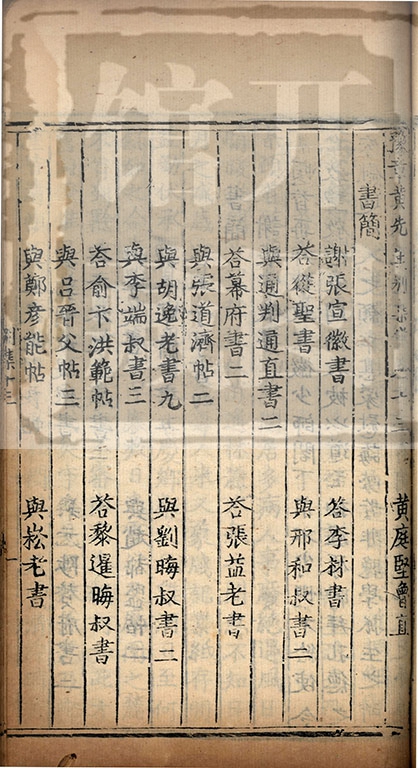 豫章黃先生別集卷
黃庭堅魯直
書簡
謝張宣徽書
答李材書
答從聖書
與邢和叔書二
與通判通直書二
答幕府書二
答張益老書
與張道濟帖二
與胡逸老書九
與劉晦叔書二
與李端叔書三
答俞卞洪範帖
答黎暹晦叔書
與呂晉父帖三
與鄭彥能帖
與崧老書
別集十三
一